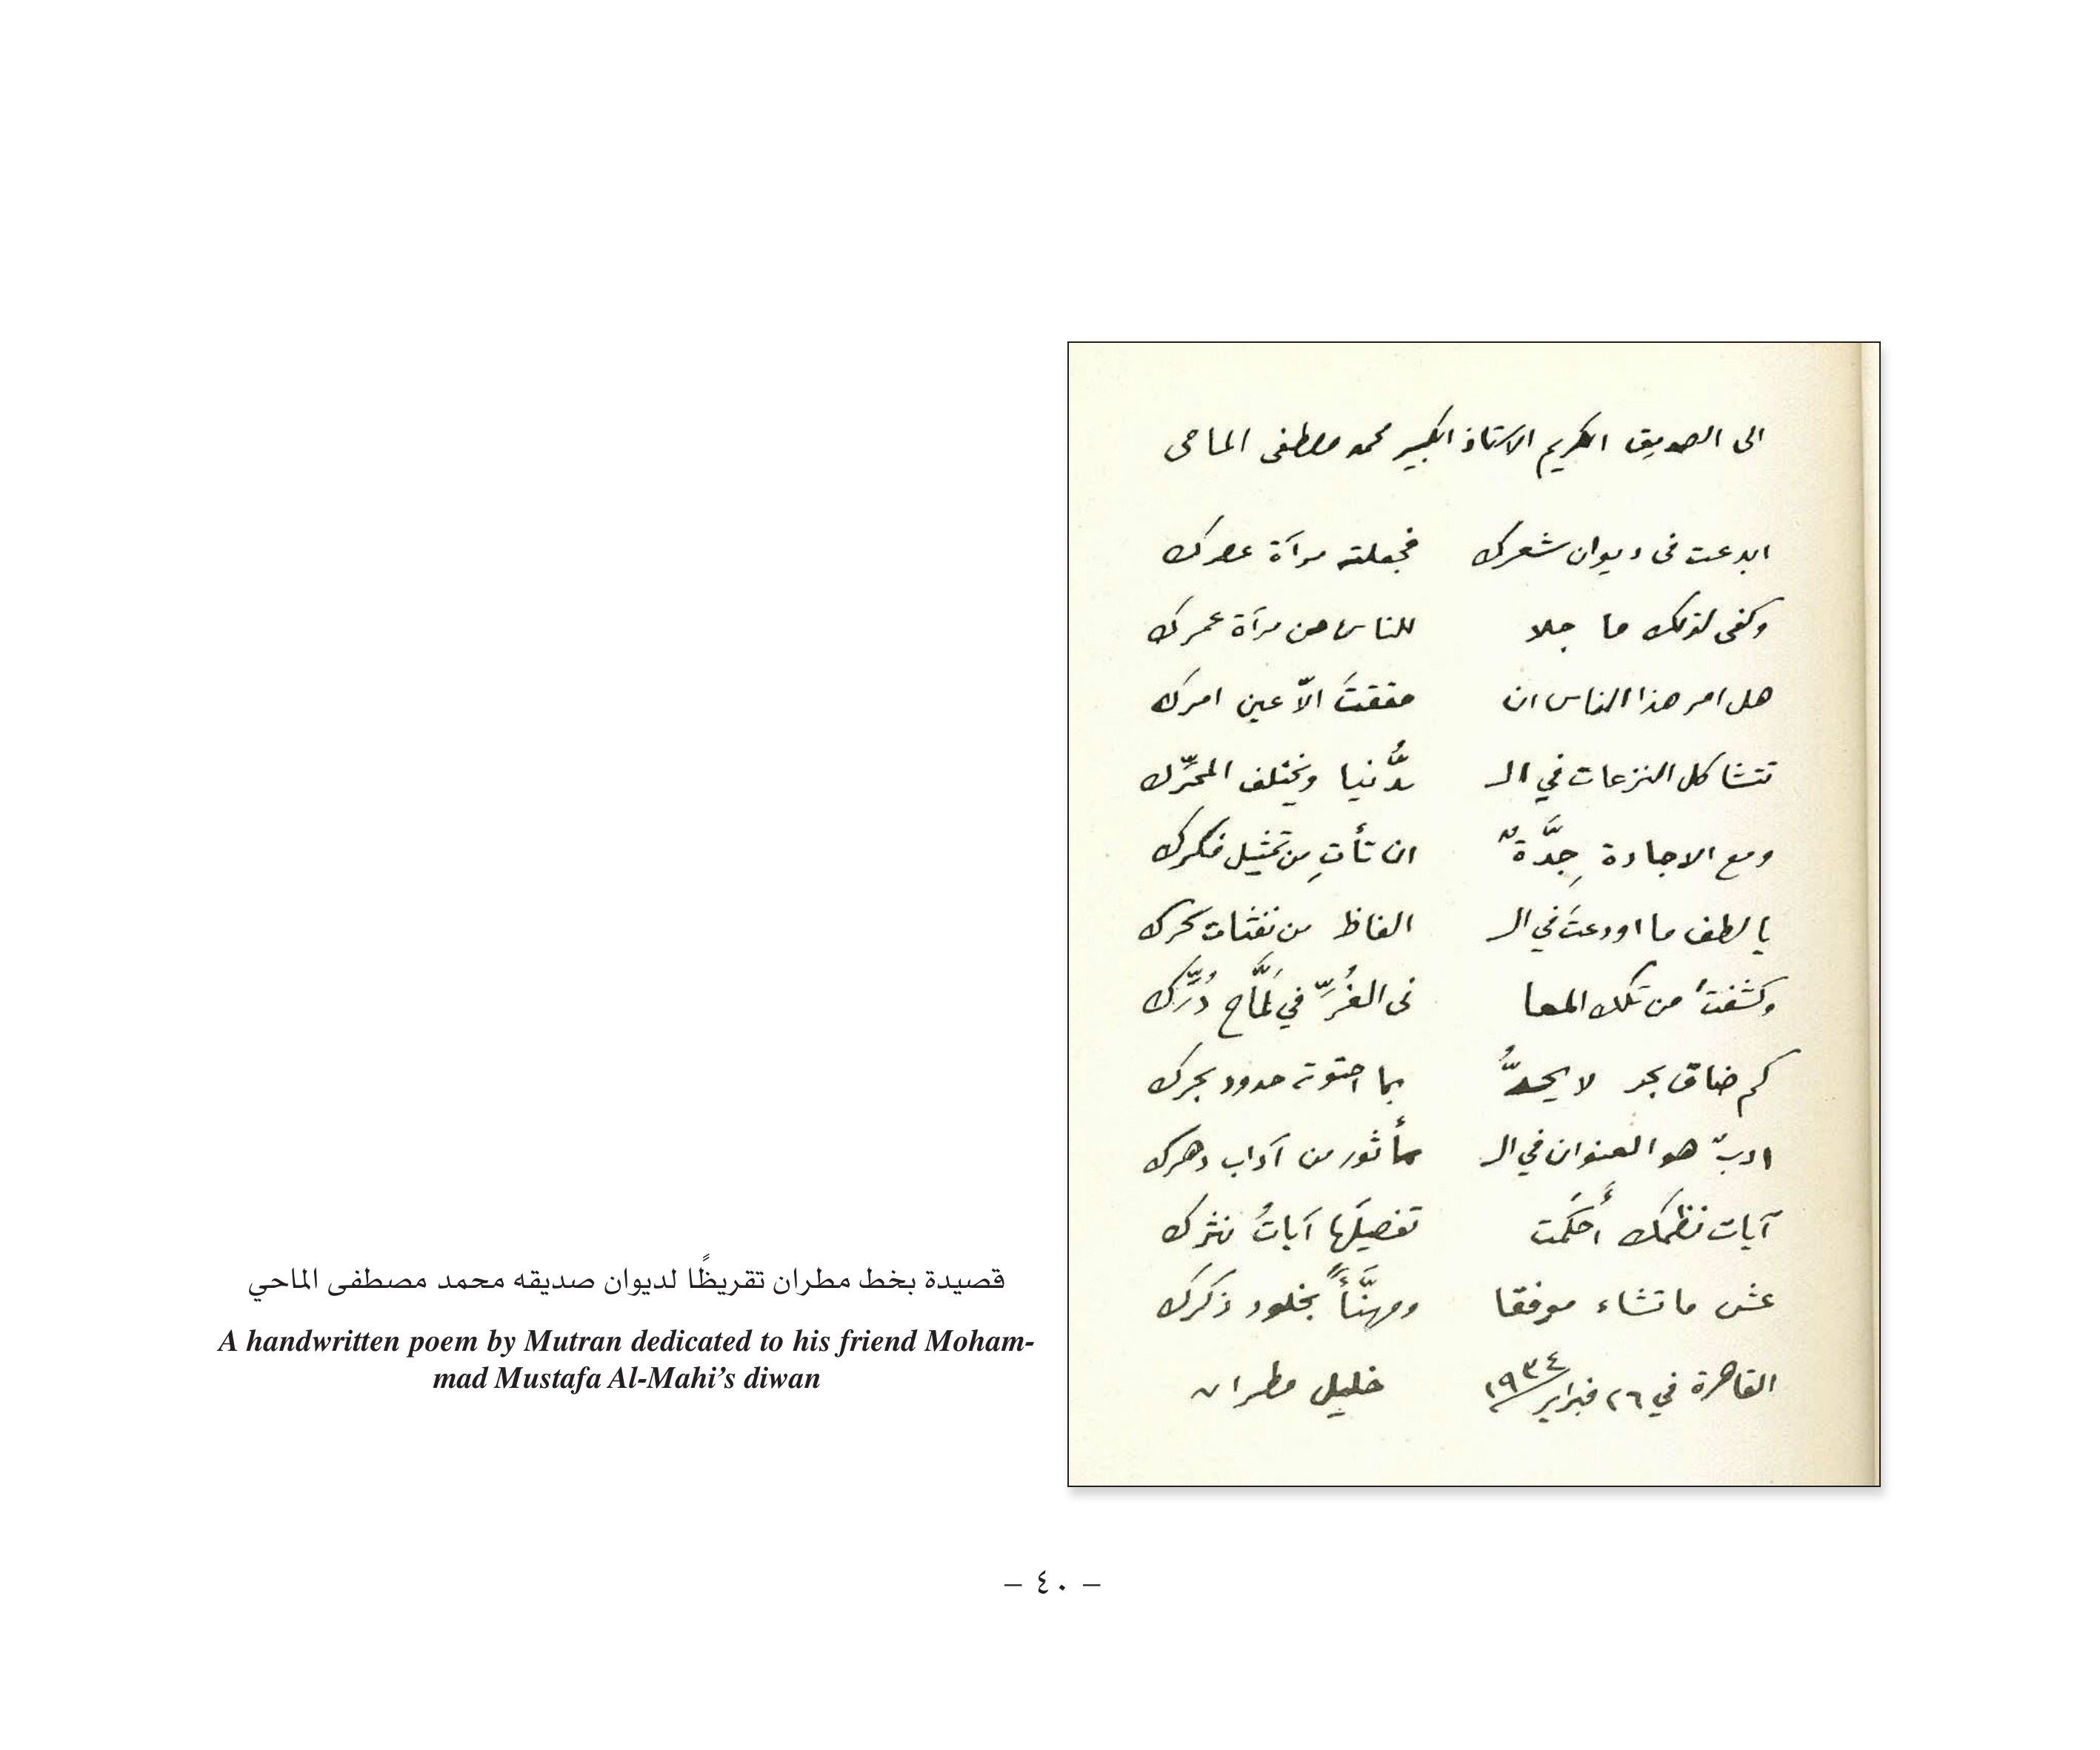 الى الصديق الكريم الاستاذ الكبير محمد مصطفى الماحى
ابدعت فى ديوان شعرك فجعلته مرآة عصرك
وكفى لذلك ما جلا للناس من مرآة عمرك
هل امر هذا الناس ان حققتَ الاّ عين امرك
تتشاكل النزعات في الـ ـدُّنيا ويختلف المحرِّك
ومع الاجادة جِدَّةٌ ان تأتِ من تمثيل فكرك
يا لطف ما اودعتَ في الـ الفاظ من نفثات سحرك
وكشفتَ من تلك المعا نى الغُرِّ في لَمَّاح دُرِّك
كم ضاق بحر لا يحدُّ بما احتوته حدود بحرك
ادبٌ هو العنوان في الـ ـمأثور من آداب دهرك
آيات نظمك أُحكمَت تفصيلَها آياتُ نثرك
عش ما تشاء موفقا ومهنَّأً بخلود ذكرك
القاهرة في ٢٦ فبراير ١٩٣٤ خليل مطران
قصيدة بخط مطران تقريظًا لديوان صديقه محمد مصطفى الماحي
A handwritten poem by Mutran dedicated to his friend Moham-
mad Mustafa Al-Mahi’s diwan
– ٤٠ –